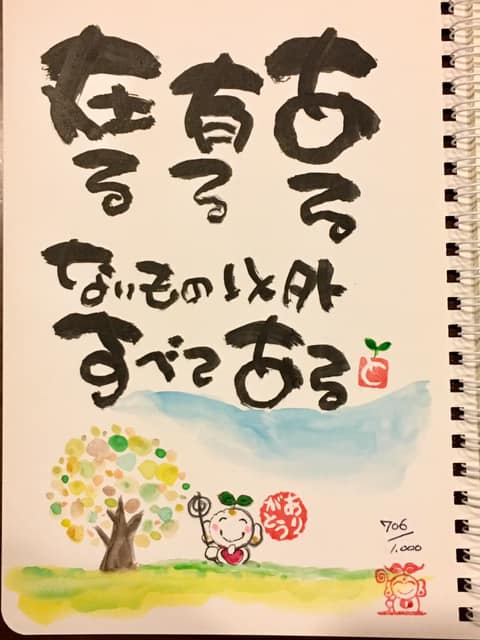 ある
有る
在る
ないもの以外
すべてある
あり
がとう
706
1.000